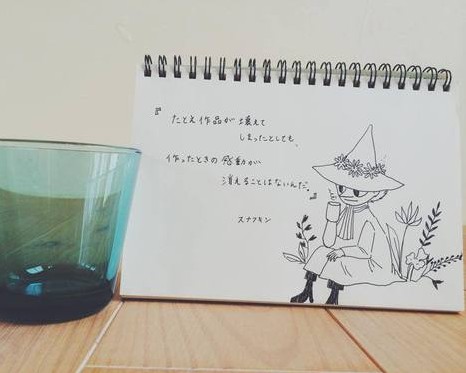 『たとえ作品が壊えて
しまったとしても、
作ったときの感動が
消えることはないんだ。』
スナフキン